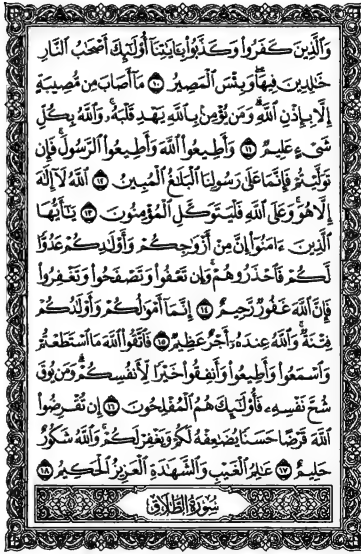 وَٱلَّذِينَ كَفَرُوا۟ وَكَذَّبُوا۟ بِـَٔايَـٰتِنَآ أُو۟لَـٰٓئِكَ أَصْحَـٰبُ ٱلنَّارِ
خَـٰلِدِينَ فِيهَا ۖ وَبِئْسَ ٱلْمَصِيرُ ١٠ مَآ أَصَابَ مِن مُّصِيبَةٍ
إِلَّا بِإِذْنِ ٱللَّهِ ۗ وَمَن يُؤْمِنۢ بِٱللَّهِ يَهْدِ قَلْبَهُۥ ۚ وَٱللَّهُ بِكُلِّ
شَىْءٍ عَلِيمٌ ١١ وَأَطِيعُوا۟ ٱللَّهَ وَأَطِيعُوا۟ ٱلرَّسُولَ ۚ فَإِن
تَوَلَّيْتُمْ فَإِنَّمَا عَلَىٰ رَسُولِنَا ٱلْبَلَـٰغُ ٱلْمُبِينُ ١٢ ٱللَّهُ لَآ إِلَـٰهَ
إِلَّا هُوَ ۚ وَعَلَى ٱللَّهِ فَلْيَتَوَكَّلِ ٱلْمُؤْمِنُونَ ١٣ يَـٰٓأَيُّهَا
ٱلَّذِينَ ءَامَنُوٓا۟ إِنَّ مِنْ أَزْوَٰجِكُمْ وَأَوْلَـٰدِكُمْ عَدُوًّا
لَّكُمْ فَٱحْذَرُوهُمْ ۚ وَإِن تَعْفُوا۟ وَتَصْفَحُوا۟ وَتَغْفِرُوا۟
فَإِنَّ ٱللَّهَ غَفُورٌ رَّحِيمٌ ١٤ إِنَّمَآ أَمْوَٰلُكُمْ وَأَوْلَـٰدُكُمْ
فِتْنَةٌ ۚ وَٱللَّهُ عِندَهُۥٓ أَجْرٌ عَظِيمٌ ١٥ فَٱتَّقُوا۟ ٱللَّهَ مَا ٱسْتَطَعْتُمْ
وَٱسْمَعُوا۟ وَأَطِيعُوا۟ وَأَنفِقُوا۟ خَيْرًا لِّأَنفُسِكُمْ ۗ وَمَن يُوقَ
شُحَّ نَفْسِهِۦ فَأُو۟لَـٰٓئِكَ هُمُ ٱلْمُفْلِحُونَ ١٦ إِن تُقْرِضُوا۟
ٱللَّهَ قَرْضًا حَسَنًا يُضَـٰعِفْهُ لَكُمْ وَيَغْفِرْ لَكُمْ ۚ وَٱللَّهُ شَكُورٌ
حَلِيمٌ ١٧ عَـٰلِمُ ٱلْغَيْبِ وَٱلشَّهَـٰدَةِ ٱلْعَزِيزُ ٱلْحَكِيمُ ١٨
سُورَةُ ٱلطَّلَاقِ